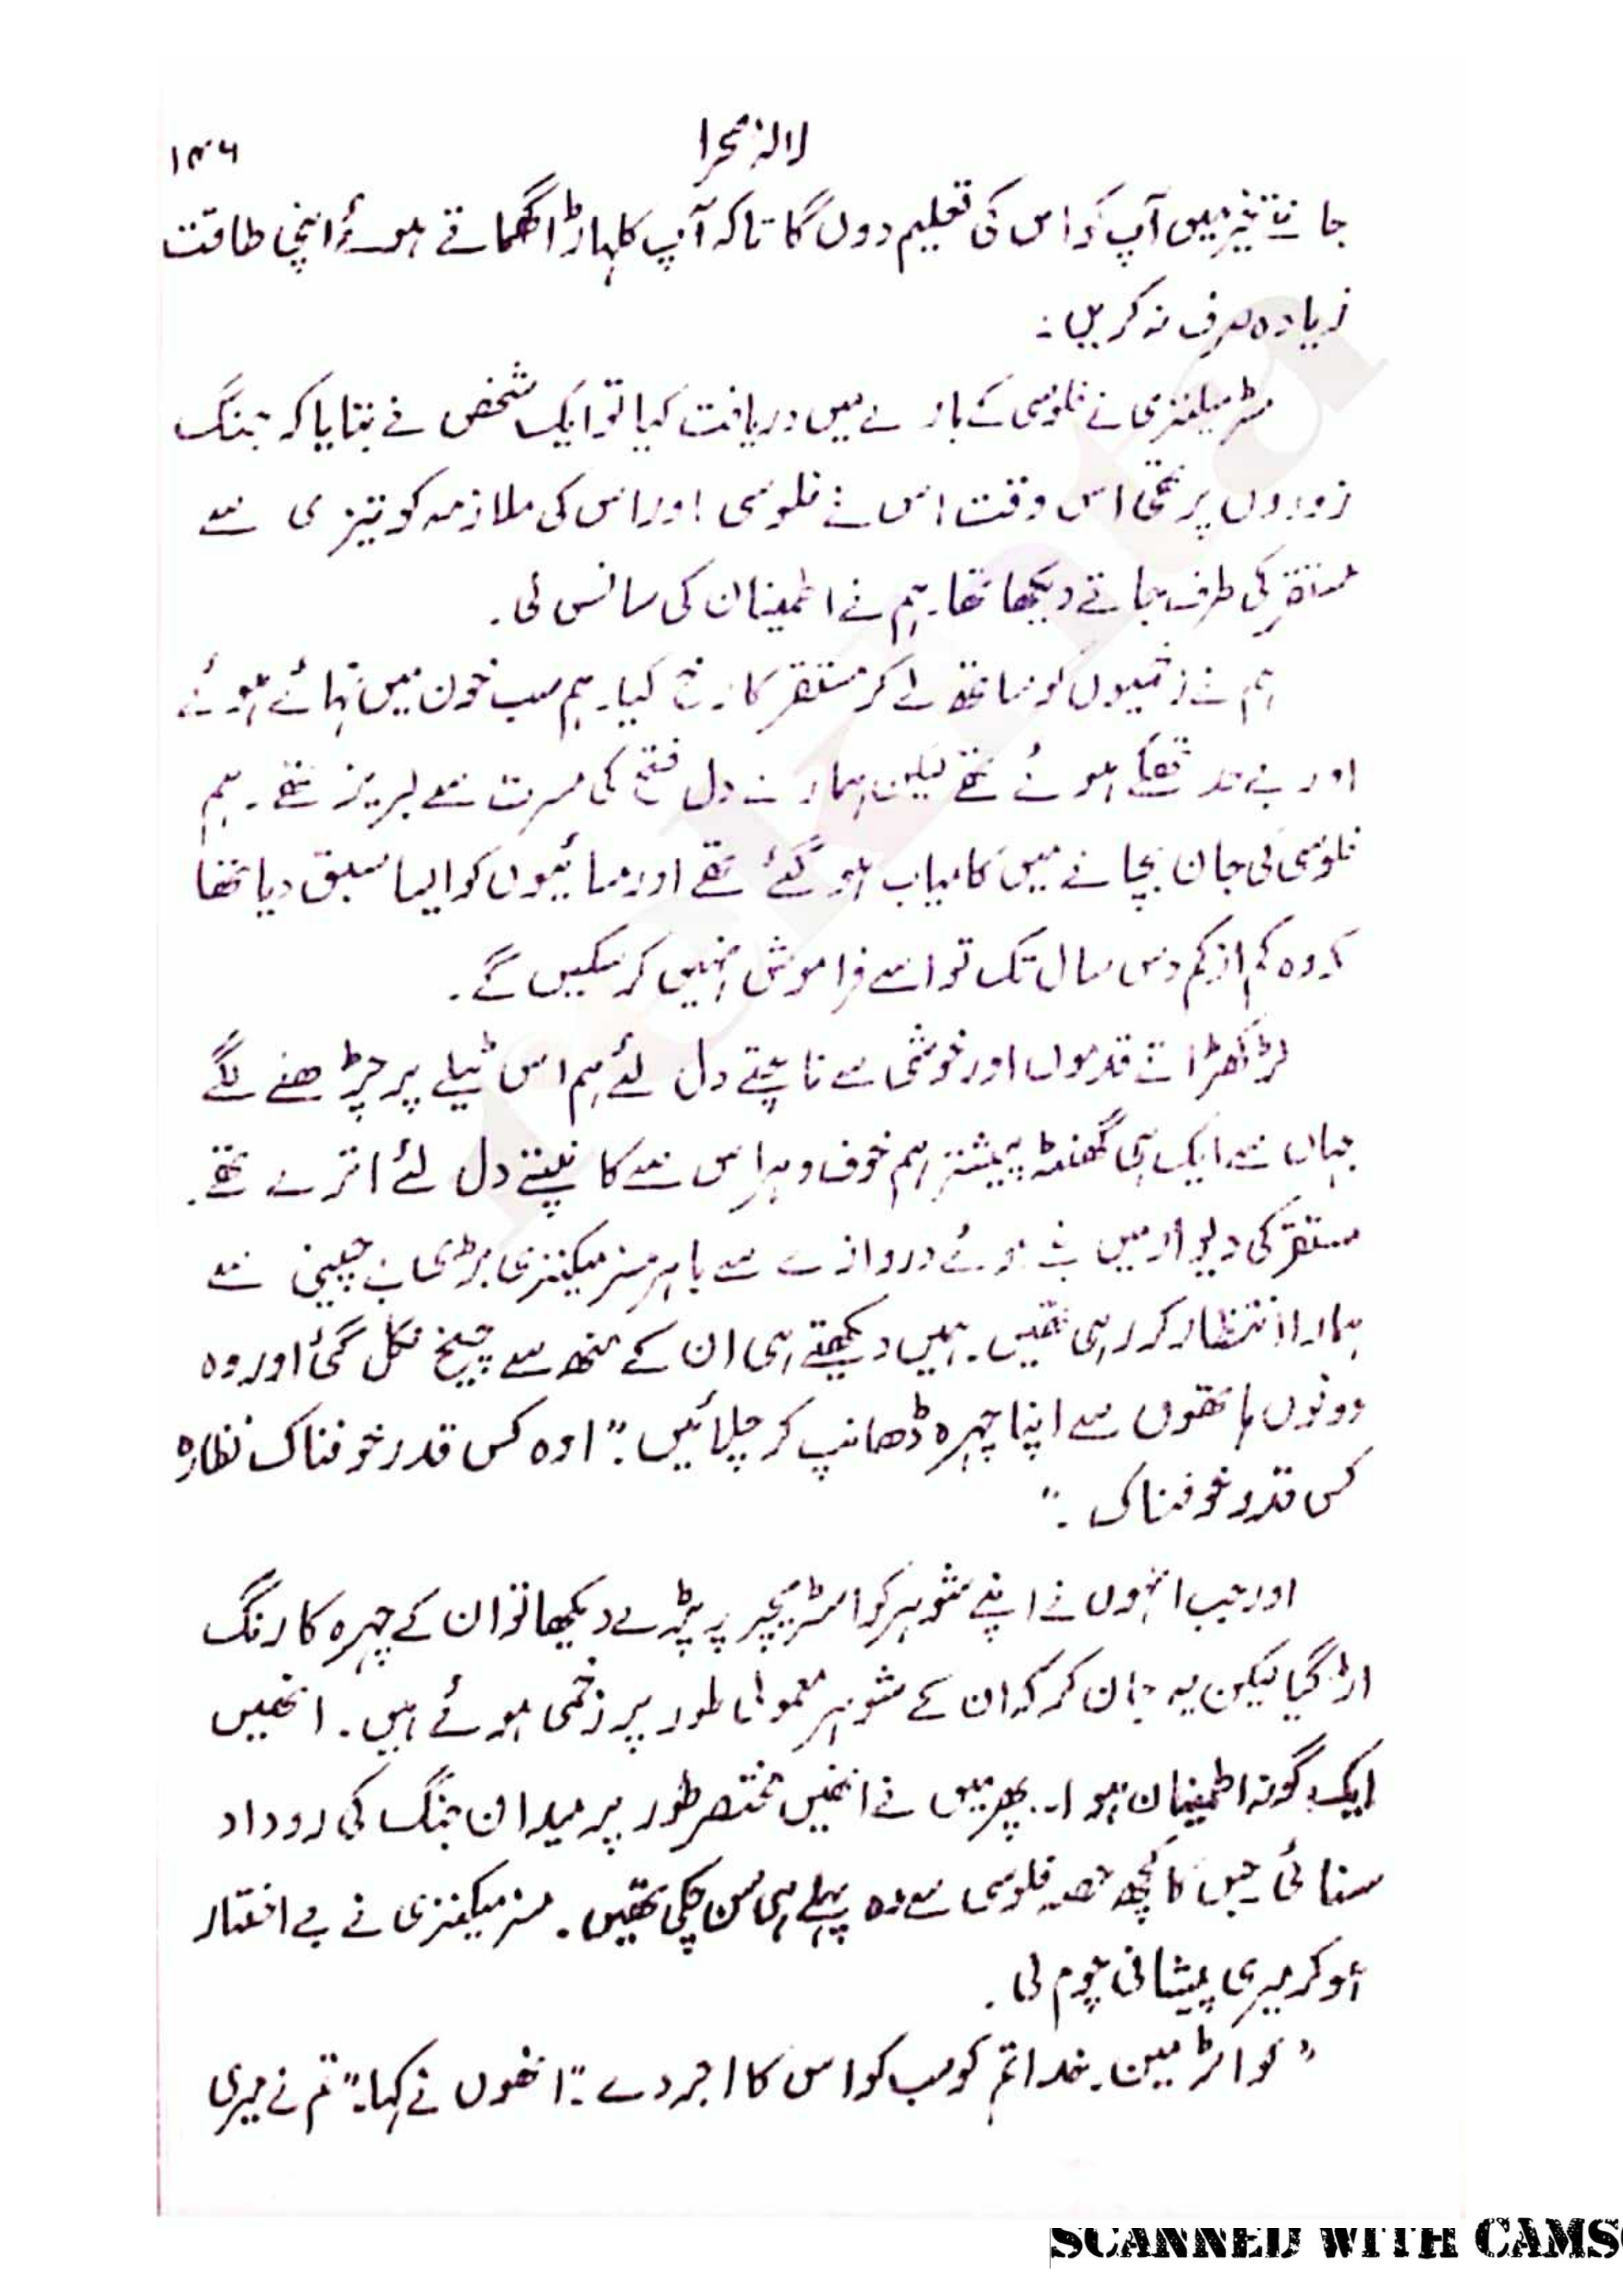 لالۂ صحرا
۱۴۶
جانتے خیر میں آپ کو اس کی تعلیم دوں گا تاکہ آپ کلہاڑا گھماتے ہوئے اپنی طاقت
زیادہ صرف نہ کریں۔
مسٹر میکنزی نے فلوسی کے بارے میں دریافت کیا تو ایک شخص نے بتایا کہ جنگ
زوروں پر تھی اس وقت اس نے فلوسی اور اس کی ملازمہ کو تیزی سے
مستقر کی طرف جاتے دیکھا تھا۔ ہم نے اطمینان کی سانس لی۔
ہم نے زخمیوں کو ساتھ لے کر مستقر کا رخ کیا۔ ہم سب خون میں نہائے ہوئے
اور بے حد تھکے ہوئے تھے لیکن ہمارے دل فتح کی مسرت سے لبریز تھے۔ ہم
فلوسی کی جان بچانے میں کامیاب ہو گئے تھے اور مسائیوں کو ایسا سبق دیا تھا
کہ وہ کم از کم دس سال تک تو اسے فراموش نہیں کر سکیں گے۔
لڑکھڑاتے قدموں اور خوشی سے ناچتے دل لئے ہم اس ٹیلے پر چڑھنے لگے
جہاں سے ایک ہی گھنٹہ پیشتر ہم خوف و ہراس سے کانپتے دل لئے اترے تھے۔
مستقر کی دیوار میں بنے ہوئے دروازے سے باہر مسز میکنزی بڑی بے چینی سے
ہمارا انتظار کر رہی تھیں۔ ہمیں دیکھتے ہی ان کے منھ سے چیخ نکل گئی اور وہ
دونوں ہاتھوں سے اپنا چہرہ ڈھانپ کر چلائیں۔ ”اوہ کس قدر خوفناک نظارہ
کس قدر خوفناک۔“
اور جب انہوں نے اپنے شوہر کو اسٹریچر پر پڑے دیکھا تو ان کے چہرہ کا رنگ
اڑ گیا لیکن یہ جان کر کہ ان کے شوہر معمولی طور پر زخمی ہوئے ہیں۔ انھیں
ایک گونہ اطمینان ہوا۔ پھر میں نے انھیں مختصر طور پر میدان جنگ کی روداد
سنائی جس کا کچھ حصہ فلوسی سے وہ پہلے ہی سن چکی تھیں۔ مسز میکنزی نے بے اختیار
ہو کر میری پیشانی چوم لی۔
”کواٹرمین۔ خدا تم کو سب کو اس کا اجر دے۔“ انھوں نے کہا۔ ”تم نے میری
SCANNED WITH CAMS